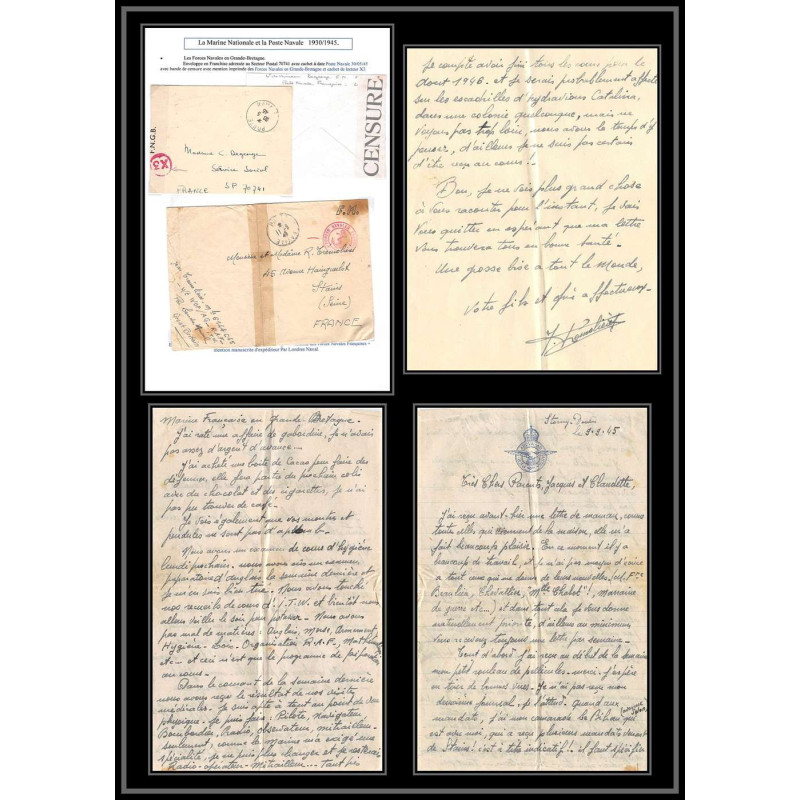 La Marine Nationale et la Poste Navale 1930/1945.
Les Forces Navales en Grande-Bretagne.
Enveloppe en Franchise adressée au Secteur Postal 70741 avec cachet à date Poste Navale 30/05/45
avec bande de censure avec mention imprimée des Forces Navales en Grande-Bretagne et cachet de lecteur X3.
CENSURE
F.N.G.B.
X3
Madame C.
Service Social
FRANCE S.P. 70741
F.M.
Monsieur et Madame R. Tremoliès
46 Avenue
Stains
(Seine)
FRANCE
mention manuscrite d'expéditeur Par Londres Naval.
Je compte avoir fini tous les cours pour le
dout 1946 et je serais probablement affecté
sur les escadrilles d'hydravions Catalina,
dans une colonie quelconque, mais ne
voyons pas trop loin, nous avons le temps d'y
penser, d'ailleurs je ne suis pas certain
d'être reçu au cours !
Bon, je ne vois plus grand chose
à vous raconter pour l'instant, je vais
vous quitter en espérant que ma lettre
vous trouvera tous en bonne santé.
Une grosse bise à tout le monde,
Votre fils et frère affectueux
Marine Française en Grande-Bretagne.
J'ai raté une affaire de gabardine, je n'avais
pas assez d'argent d'avance.
J'ai acheté une boîte de Cacao pour faire des
déjeuners, elle fera partie du prochain colis
avec du chocolat et des cigarettes, je n'ai
pas pu trouver de café.
Je vois également que vos montres et
pendules ne sont pas d'aplomb.
Nous avons un examen de cours d'hygiène
lundi prochain, nous avons eu un examen
préparatoire d'anglais la semaine dernière et
je m'en suis bien tiré. Nous avons touché
nos recueils de cours d'I.T.W. et bientôt nous
allons veiller le soir pour potasser. Nous avons
pas mal de matières Anglais, Morse, Armement
Hygiène - Lois - Organisation R.A.F., Math
et ceci n'est que le programme de préparation
au cours.
Dans le courant de la semaine dernière
nous avons reçu le résultat de nos visites
médicales. Je suis apte à tout au point de vue
physique. Je puis faire : Pilote, Navigateur
Bombardier, Radio, observateur, mitrailleur.
Seulement, comme la Marine m'a exigé une
spécialité, je ne puis plus changer et je serais
Radio-opérateur-Mitrailleur... Tant pis
le 9.9.45
Très Chers Parents, Jacques et Claudette,
J'ai reçu avant-hier une lettre de maman, comme
toute elles qui viennent de la maison, elle m'a
fait beaucoup plaisir. En ce moment il y a
beaucoup de travail, et je n'ai pas moyen d'écrire
à tout ceux qui me donne de leurs nouvelles
Chevallier, Melle Chebot, Marraine
de guerre etc...) et dans tout cela je vous donne
naturellement priorité, d'ailleurs au minimum
vous recevrez toujours une lettre par semaine.
Tout d'abord j'ai reçu au début de la semaine
mon petit rouleau de pellicules. merci. j'espère
en tirer de bonnes vues. Je n'ai pas reçu mon
deuxième journal. J'attend. Quand aux
mandats, j'ai mon camarade Le Bihan qui
est avec moi, qui a reçu plusieurs mandats venant
de Stains ! c'est à titre indicatif ! il faut spécifier